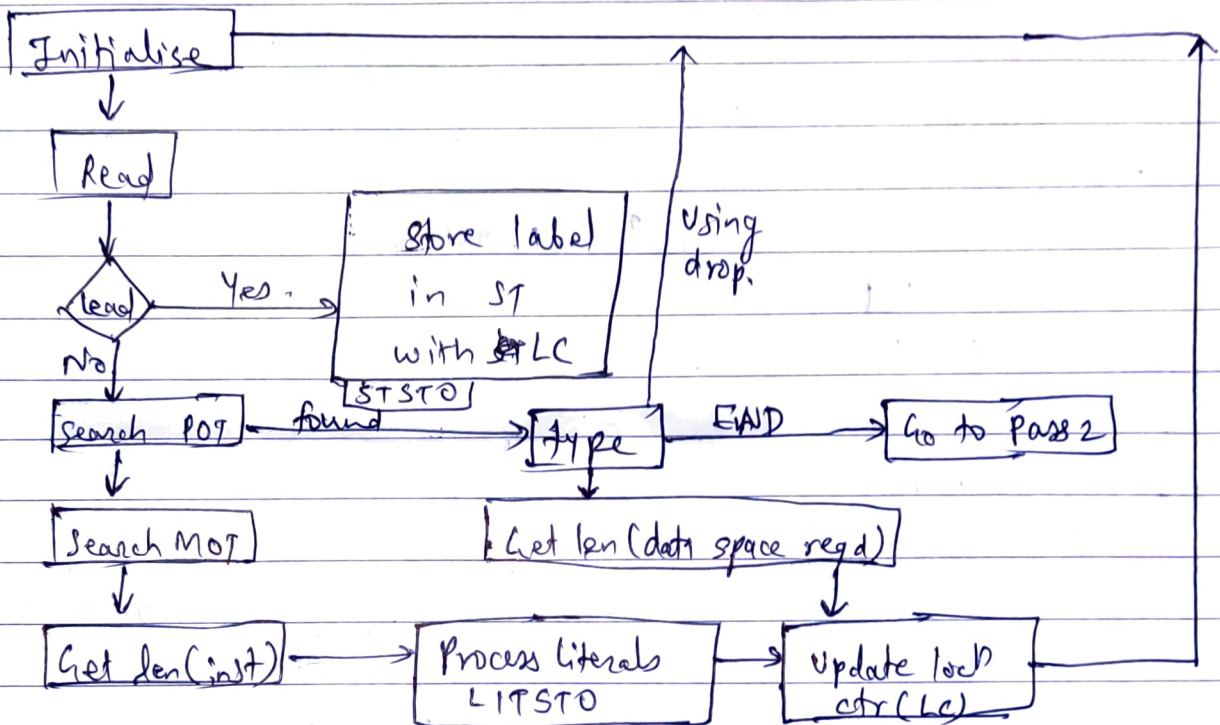 Initialise
Read
Store label
in ST
with LC
STSTO
Using
drop.
Yes.
No
Search POT
found
type
END
Go to Pass 2
Search MOT
Get len (data space reqd)
Get len (inst)
Process literals
LITSTO
Update
ctr (LC)